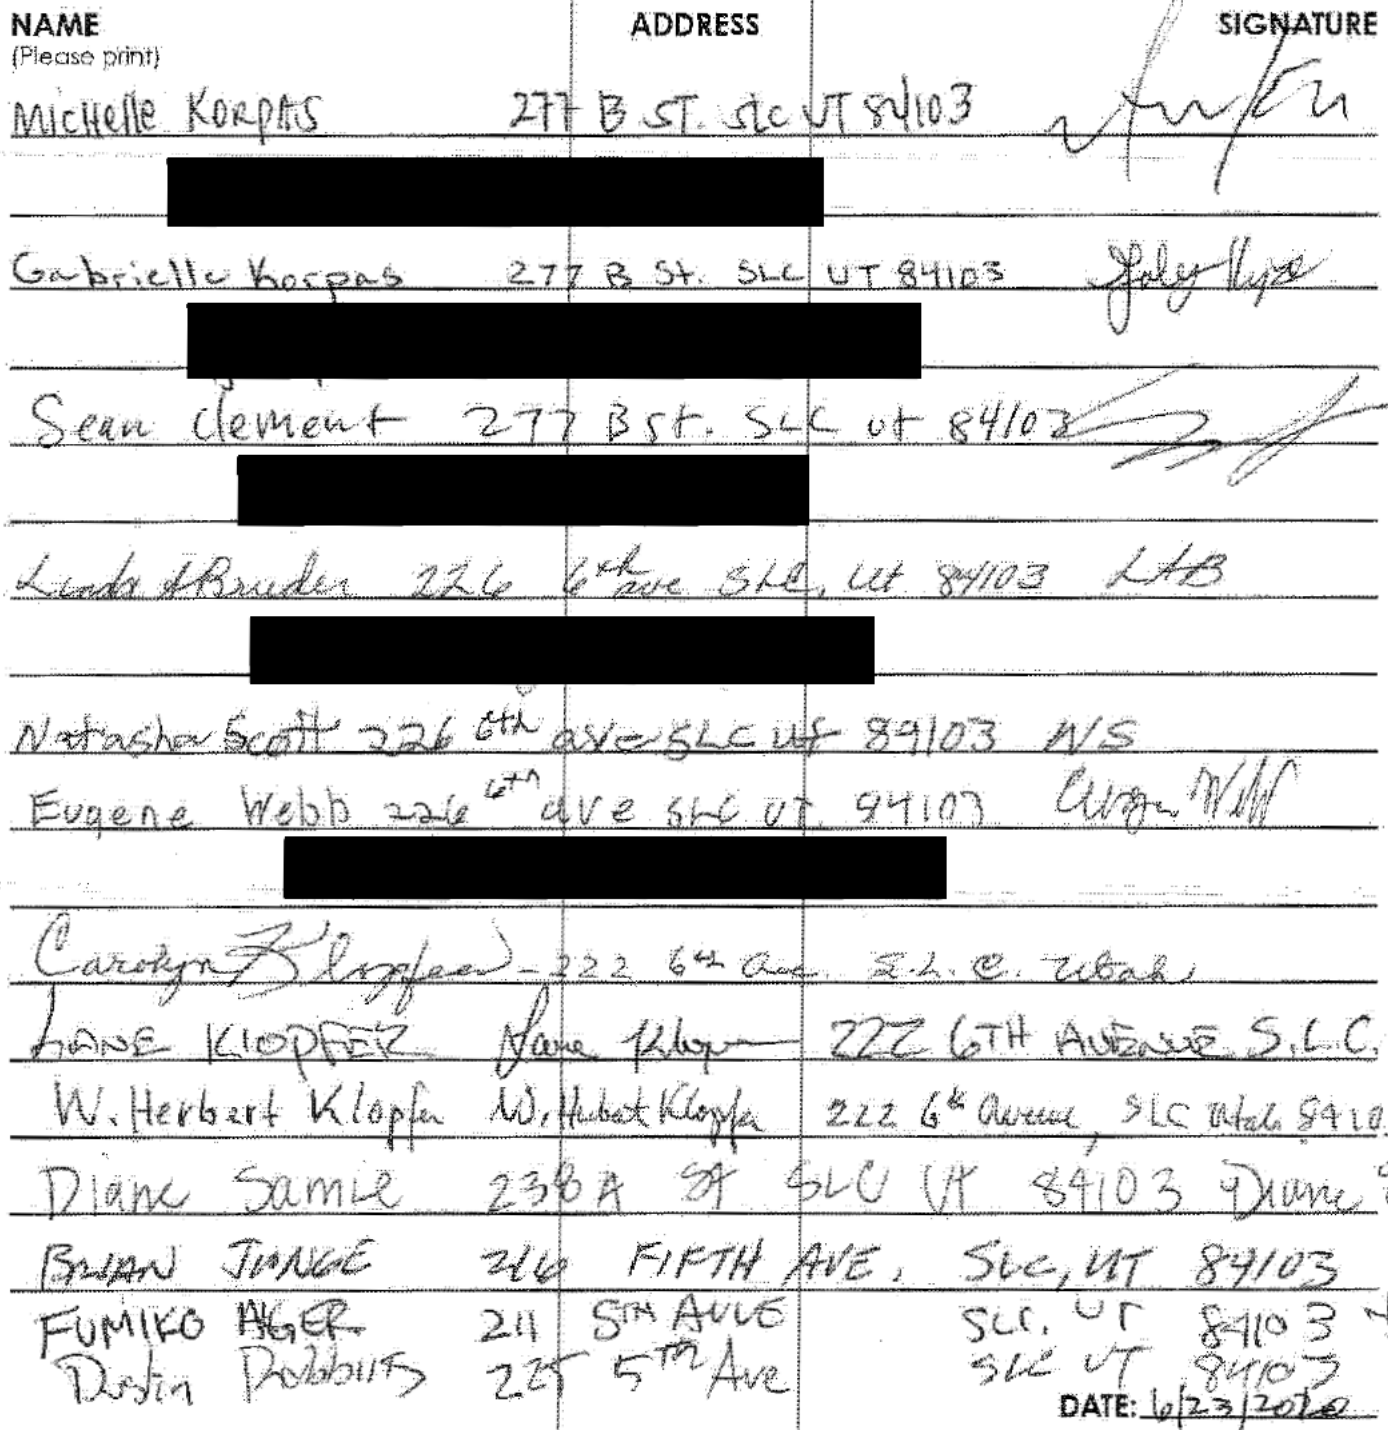 NAME ADDRESS SIGNATURE
(Please print)
Michelle Korpas 277 B ST. SLC UT 84103
Gabrielle Korpas 277 B St. SLC UT 84103
Sean Clement 277 B St. SLC Ut 84103
Linda A Bruder 226 6th ave SLC, Ut 84103 LAB
Natasha Scott 226 6th ave SLC Ut 84103 NS
Eugene Webb 226 6th ave SLC UT 84103
Carolyn Klopfer - 222 6th Ave. S.L.C. Utah
LANE KLOPFER Lane 222 6TH AVENUE S.L.C.
W. Herbert Klopfer W. Herbert Klopfer 222 6th Avenue, SLC Utah 8410
Diane Samie 238 A St SLC UT 84103 Diane
BRIAN JUNGE 216 FIFTH AVE, SLC, UT 84103
FUMIKO AGER 211 5TH AVUE SLC. UT 84103
Dustin 225 5TH Ave SLC UT 84103
DATE: 6/23/2010